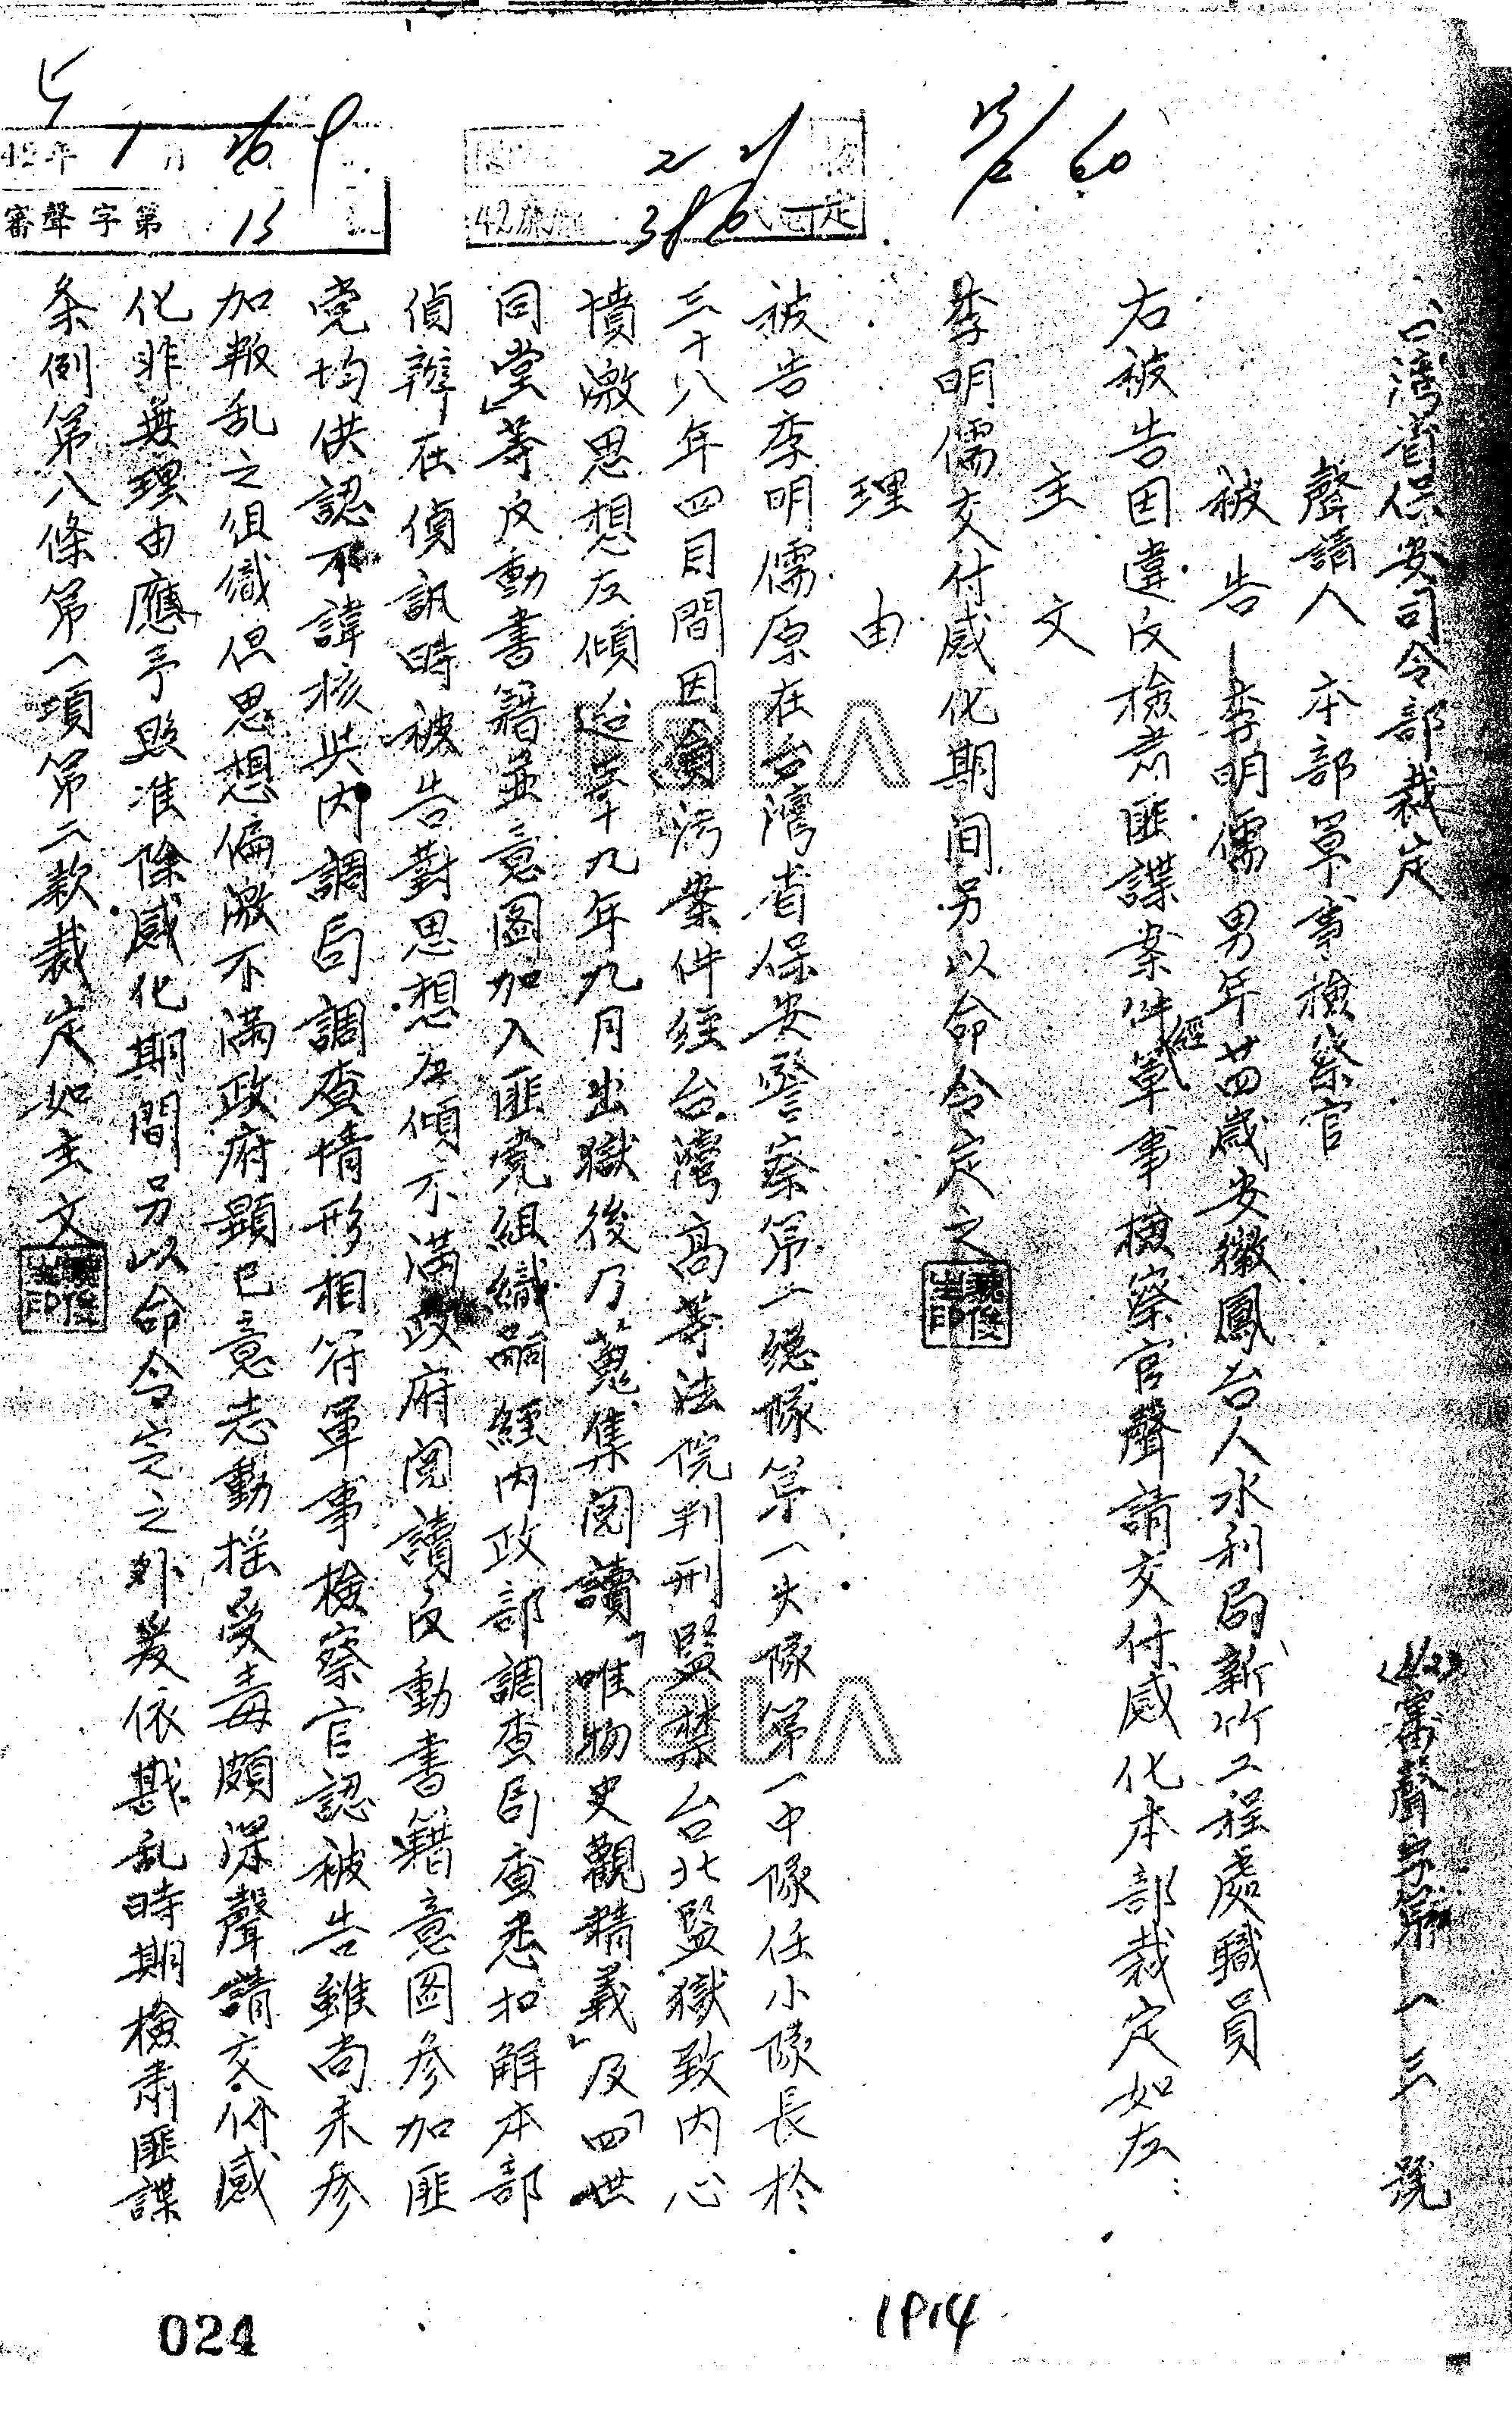 台灣省保安司令部裁定
(42)審聲字第一三號
聲請人 本部軍事檢察官
被告 李明儒 男年廿四歲安徽鳳台人水利局新竹工程處職員
右被告因違反檢肅匪諜案件經軍事檢察官聲請交付感化本部裁定如左：
主文
李明儒交付感化期间另以命令定之
理由
被告李明儒原在台灣省保安警察第一總隊第一大隊第一中隊任小隊長於
三十八年四月間因貪污案件經台灣高等法院判刑監禁台北監獄致内心
憤激思想左傾迨 十九年九月出獄後乃蒐集閱讀「唯物史觀精義」及「四世
同堂」等反動書籍並意圖加入匪党組織嗣經内政部調查局查悉扣解本部
偵辦在偵訊時被告對思想左傾不滿政府閱讀反動書籍意图參加匪
党均供認不諱核與内調局調查情形相符軍事檢察官認被告雖尚未參
加叛乱之组織但思想偏激不滿政府顯已意志動搖受毒頗深聲請交付感
化非無理由應予照准除感化期間另以命令定之外爰依戡乱時期檢肅匪諜
条例第八條第一項第二款裁定如主文
42年1月26日
審聲字第13
2 21
42 386 定
13/2 60
1914
024